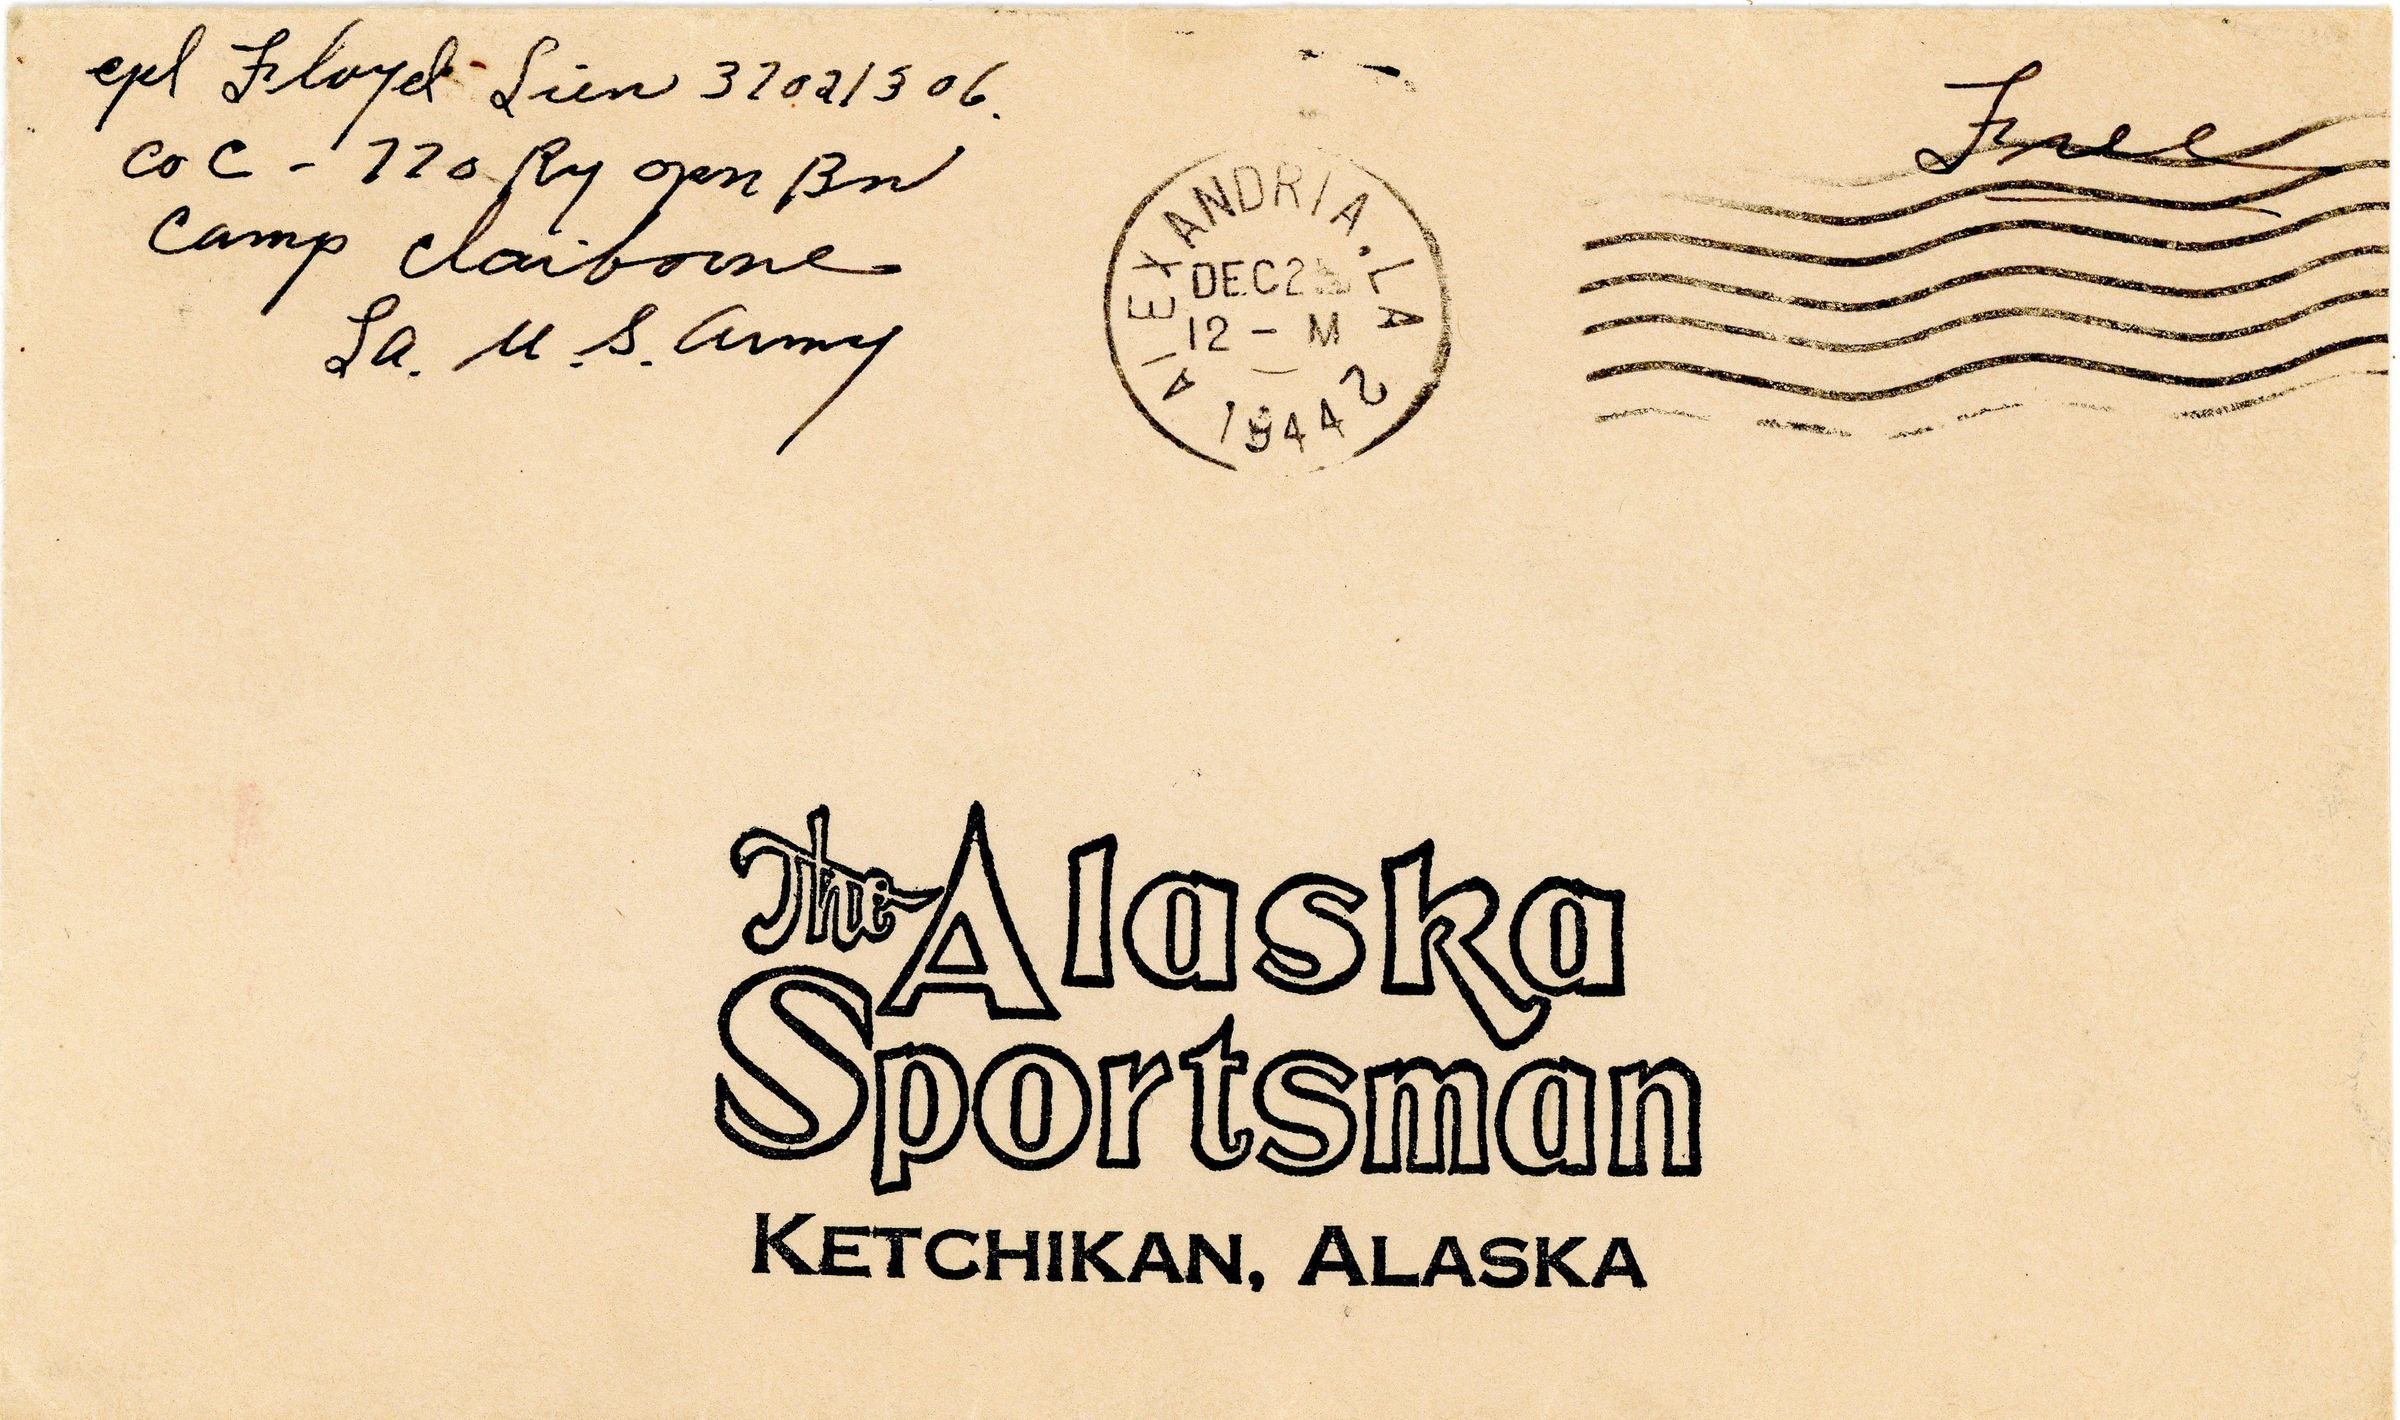 cpl Floyd Lien 37021506.
Co C - 770 Ry Opn Bn
Camp Claiborne
La. U.S. Army
Free
ALEXANDRIA. LA
DEC
12 - M
1944
2
The Alaska
Sportsman
KETCHIKAN, ALASKA